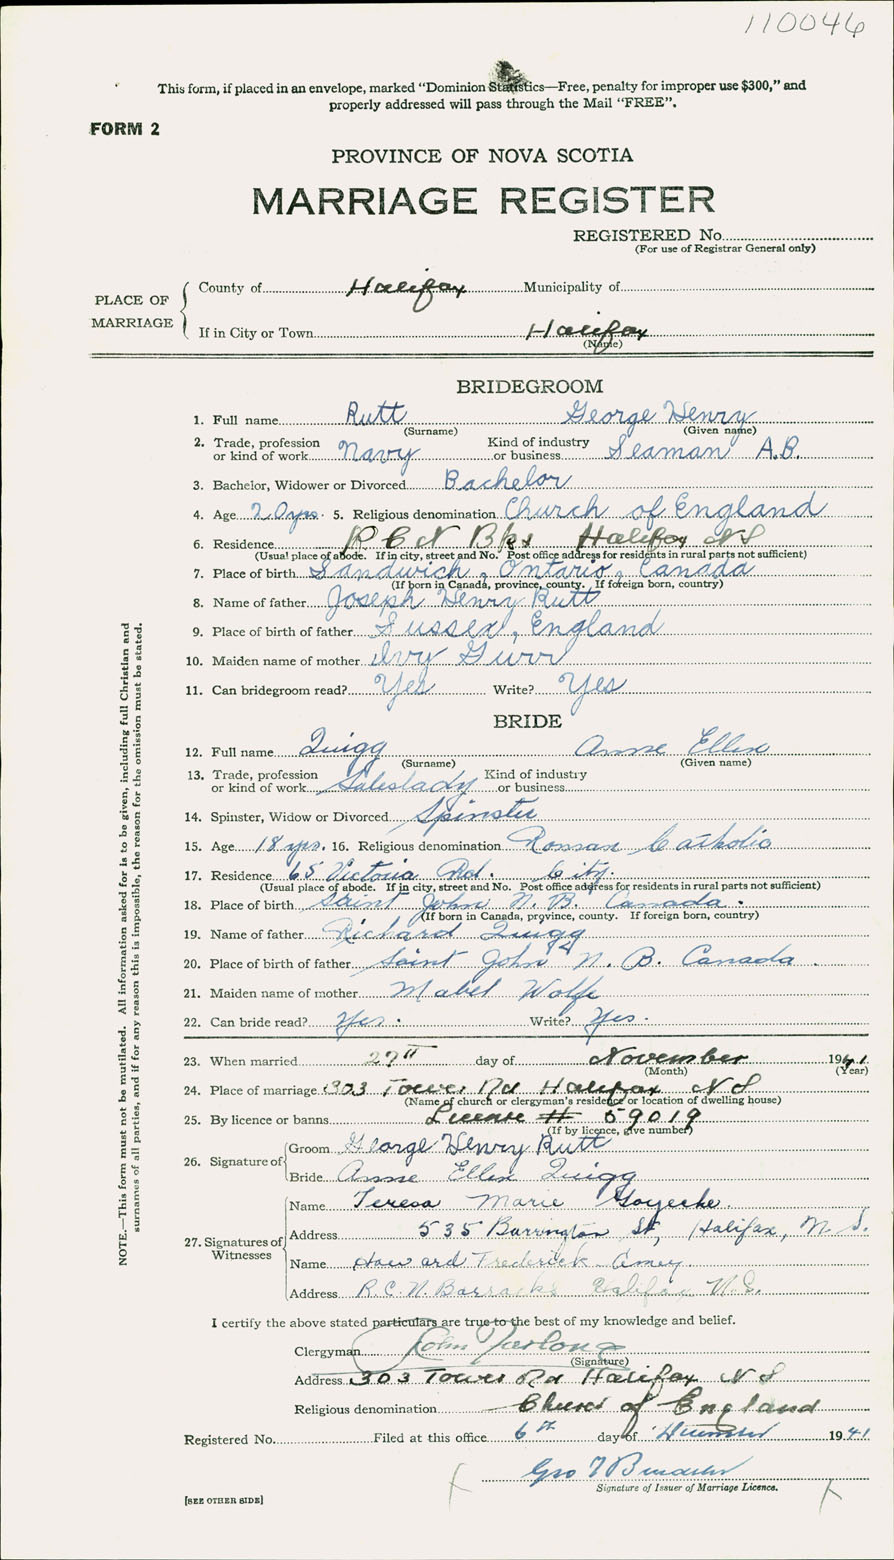 110046
This form, if placed in an envelope, marked “Dominion Statistics—Free, penalty for improper use $300,” and
properly addressed will pass through the Mail “FREE”.
FORM 2
PROVINCE OF NOVA SCOTIA
MARRIAGE REGISTER
REGISTERED No.
(For use of Registrar General only)
PLACE OF MARRIAGE
County of Halifax Municipality of
If in City or Town Halifax
(Name)
BRIDEGROOM
1. Full name Rutt George Henry
(Surname) (Given name)
2. Trade, profession or kind of work Navy Kind of industry or business Seaman A.B.
3. Bachelor, Widower or Divorced Bachelor
4. Age 20 yrs. 5. Religious denomination Church of England
6. Residence R C N Bks Halifax N S
(Usual place of abode. If in city, street and No. Post office address for residents in rural parts not sufficient)
7. Place of birth Sandwich, Ontario, Canada
(If born in Canada, province, county. If foreign born, country)
8. Name of father Joseph Henry Rutt
9. Place of birth of father Sussex, England
10. Maiden name of mother Ivy Gurr
11. Can bridegroom read? Yes Write? Yes
BRIDE
12. Full name Quigg Anne Ellen
(Surname) (Given name)
13. Trade, profession or kind of work Saleslady Kind of industry or business
14. Spinster, Widow or Divorced Spinster
15. Age 18 yrs. 16. Religious denomination Roman Catholic
17. Residence 65 Victoria Rd. City.
(Usual place of abode. If in city, street and No. Post office address for residents in rural parts not sufficient)
18. Place of birth Saint John N. B. Canada.
(If born in Canada, province, county. If foreign born, country)
19. Name of father Richard Quigg
20. Place of birth of father Saint John N. B. Canada.
21. Maiden name of mother Mabel Wolfe
22. Can bride read? Yes. Write? Yes.
23. When married 27th day of November 1941
(Month) (Year)
24. Place of marriage 303 Tower Rd Halifax N S
(Name of church or clergyman's residence or location of dwelling house)
25. By licence or banns License # 59019
(If by licence, give number)
26. Signature of
Groom George Henry Rutt
Bride Anne Ellen Quigg
27. Signatures of Witnesses
Name Teresa Marie Goyeche.
Address 535 Barrington St, Halifax, N.S.
Name Howard Frederick Amey.
Address R.C.N. Barracks Halifax N.S.
I certify the above stated particulars are true to the best of my knowledge and belief.
Clergyman John Furlong
(Signature)
Address 303 Tower Rd Halifax N S
Religious denomination Church of England
Registered No. Filed at this office 6th day of December 1941
Geo
Signature of Issuer of Marriage Licence.
[SEE OTHER SIDE]
NOTE.—This form must not be mutilated. All information asked for is to be given, including full Christian and
surnames of all parties, and if for any reason this is impossible, the reason for the omission must be stated.